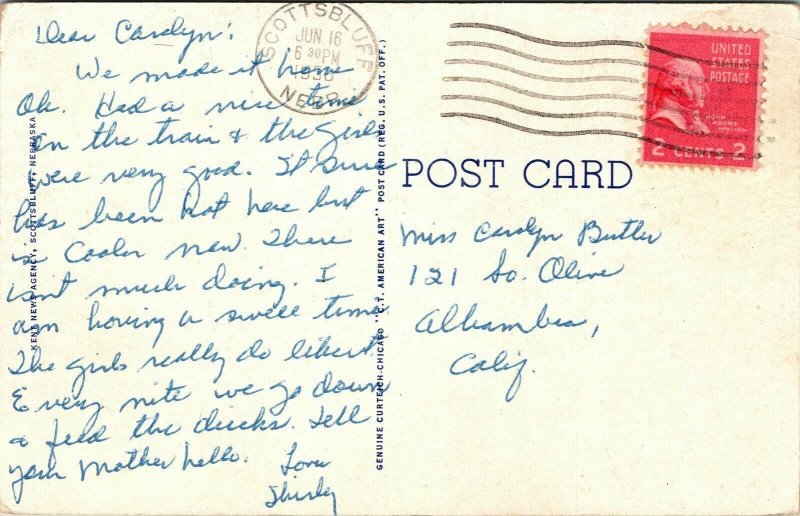 Dear Carolyn:
We made it home
Ok. Had a nice time
on the train & the girls
were very good. It sure
has been hot here but
is cooler now. There
isnt much doing. I
am having a swell time.
The girls really do like it.
Every nite we go down
& feed the ducks. Tell
your Mother hello.
Love
Shirley
SCOTTSBLUFF
JUN 16
6 30 PM
NEBR.
UNITED
STATES
POSTAGE
JOHN
ADAMS
2 CENTS 2
POST CARD
Miss Carolyn Butler
121 So. Olive
Alhambra,
Calif.
KENT NEWS AGENCY, SCOTTSBLUFF, NEBRASKA
GENUINE CURTEICH-CHICAGO "C.T. AMERICAN ART" POST CARD (REG. U.S. PAT. OFF.)